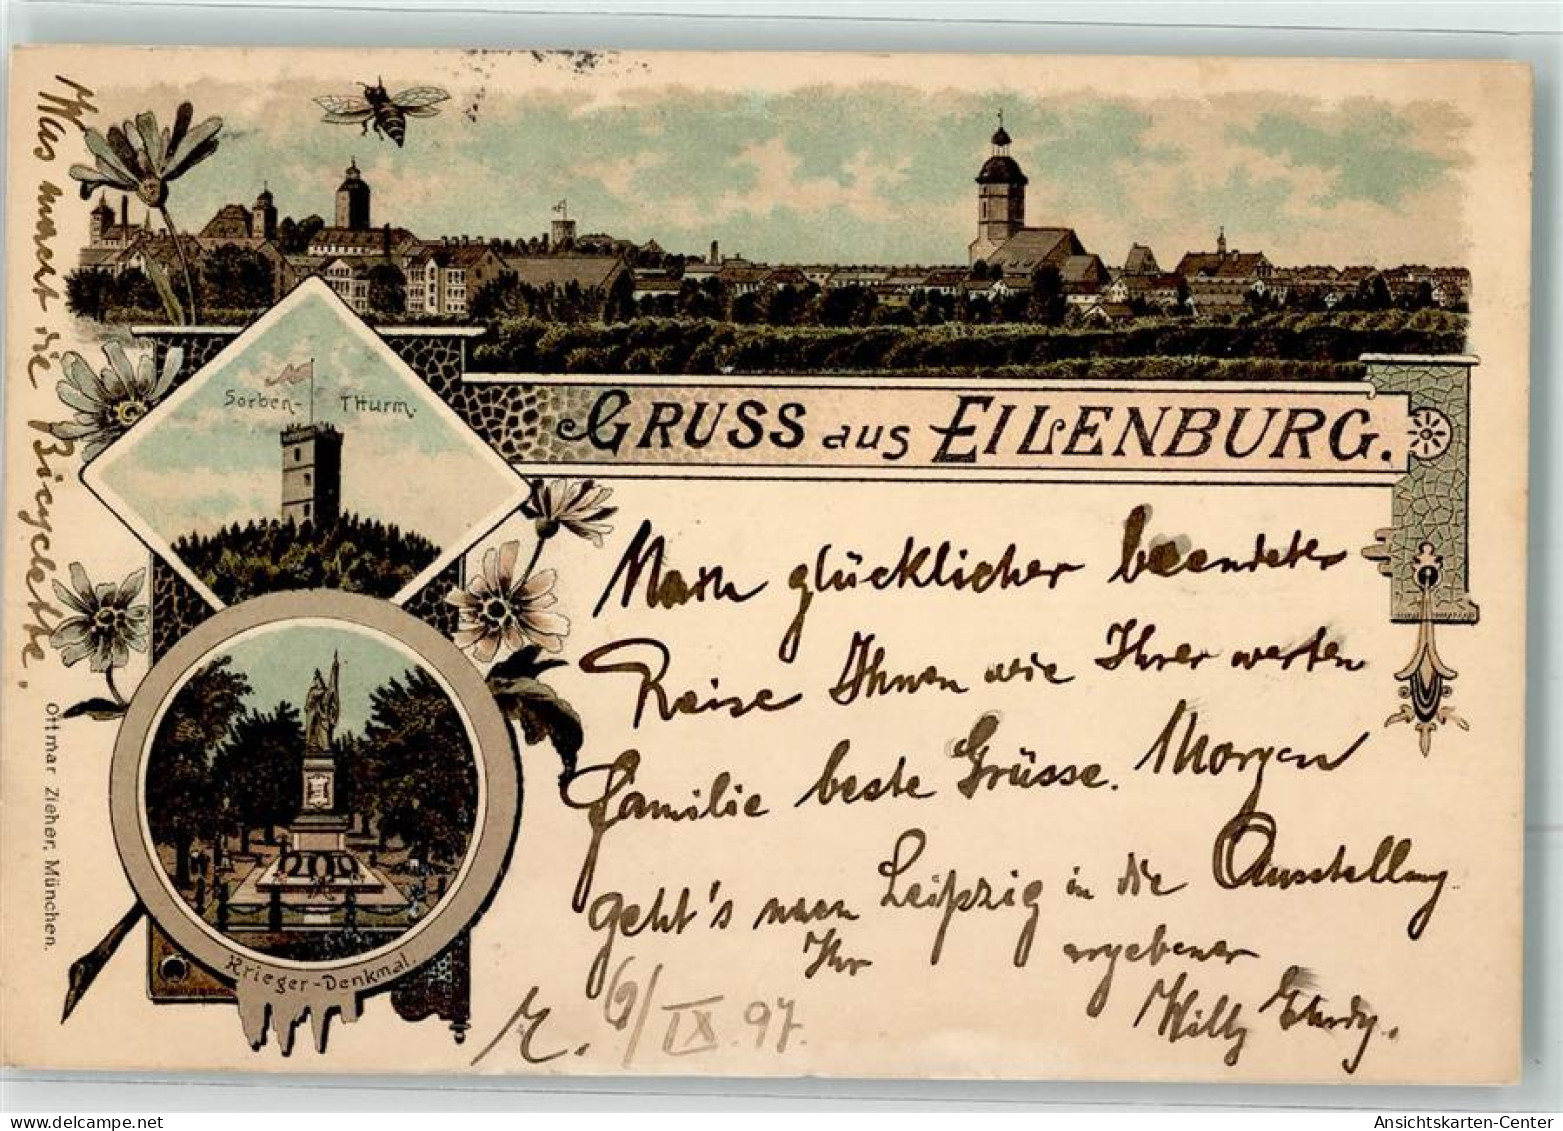 Was macht die Bicyclette.
Sorben-Thurm.
GRUSS aus EILENBURG.
Nach glücklicher beendeter
Reise Ihnen wie Ihrer werten
Familie beste Grüsse. Morgen
geht's nach Leipzig in die Ausstellung
Ihr ergebener
Willy
E. 6/IX.97.
Krieger-Denkmal.
Ottmar Zieher, München.
oldthing
Ansichtskarten-Center